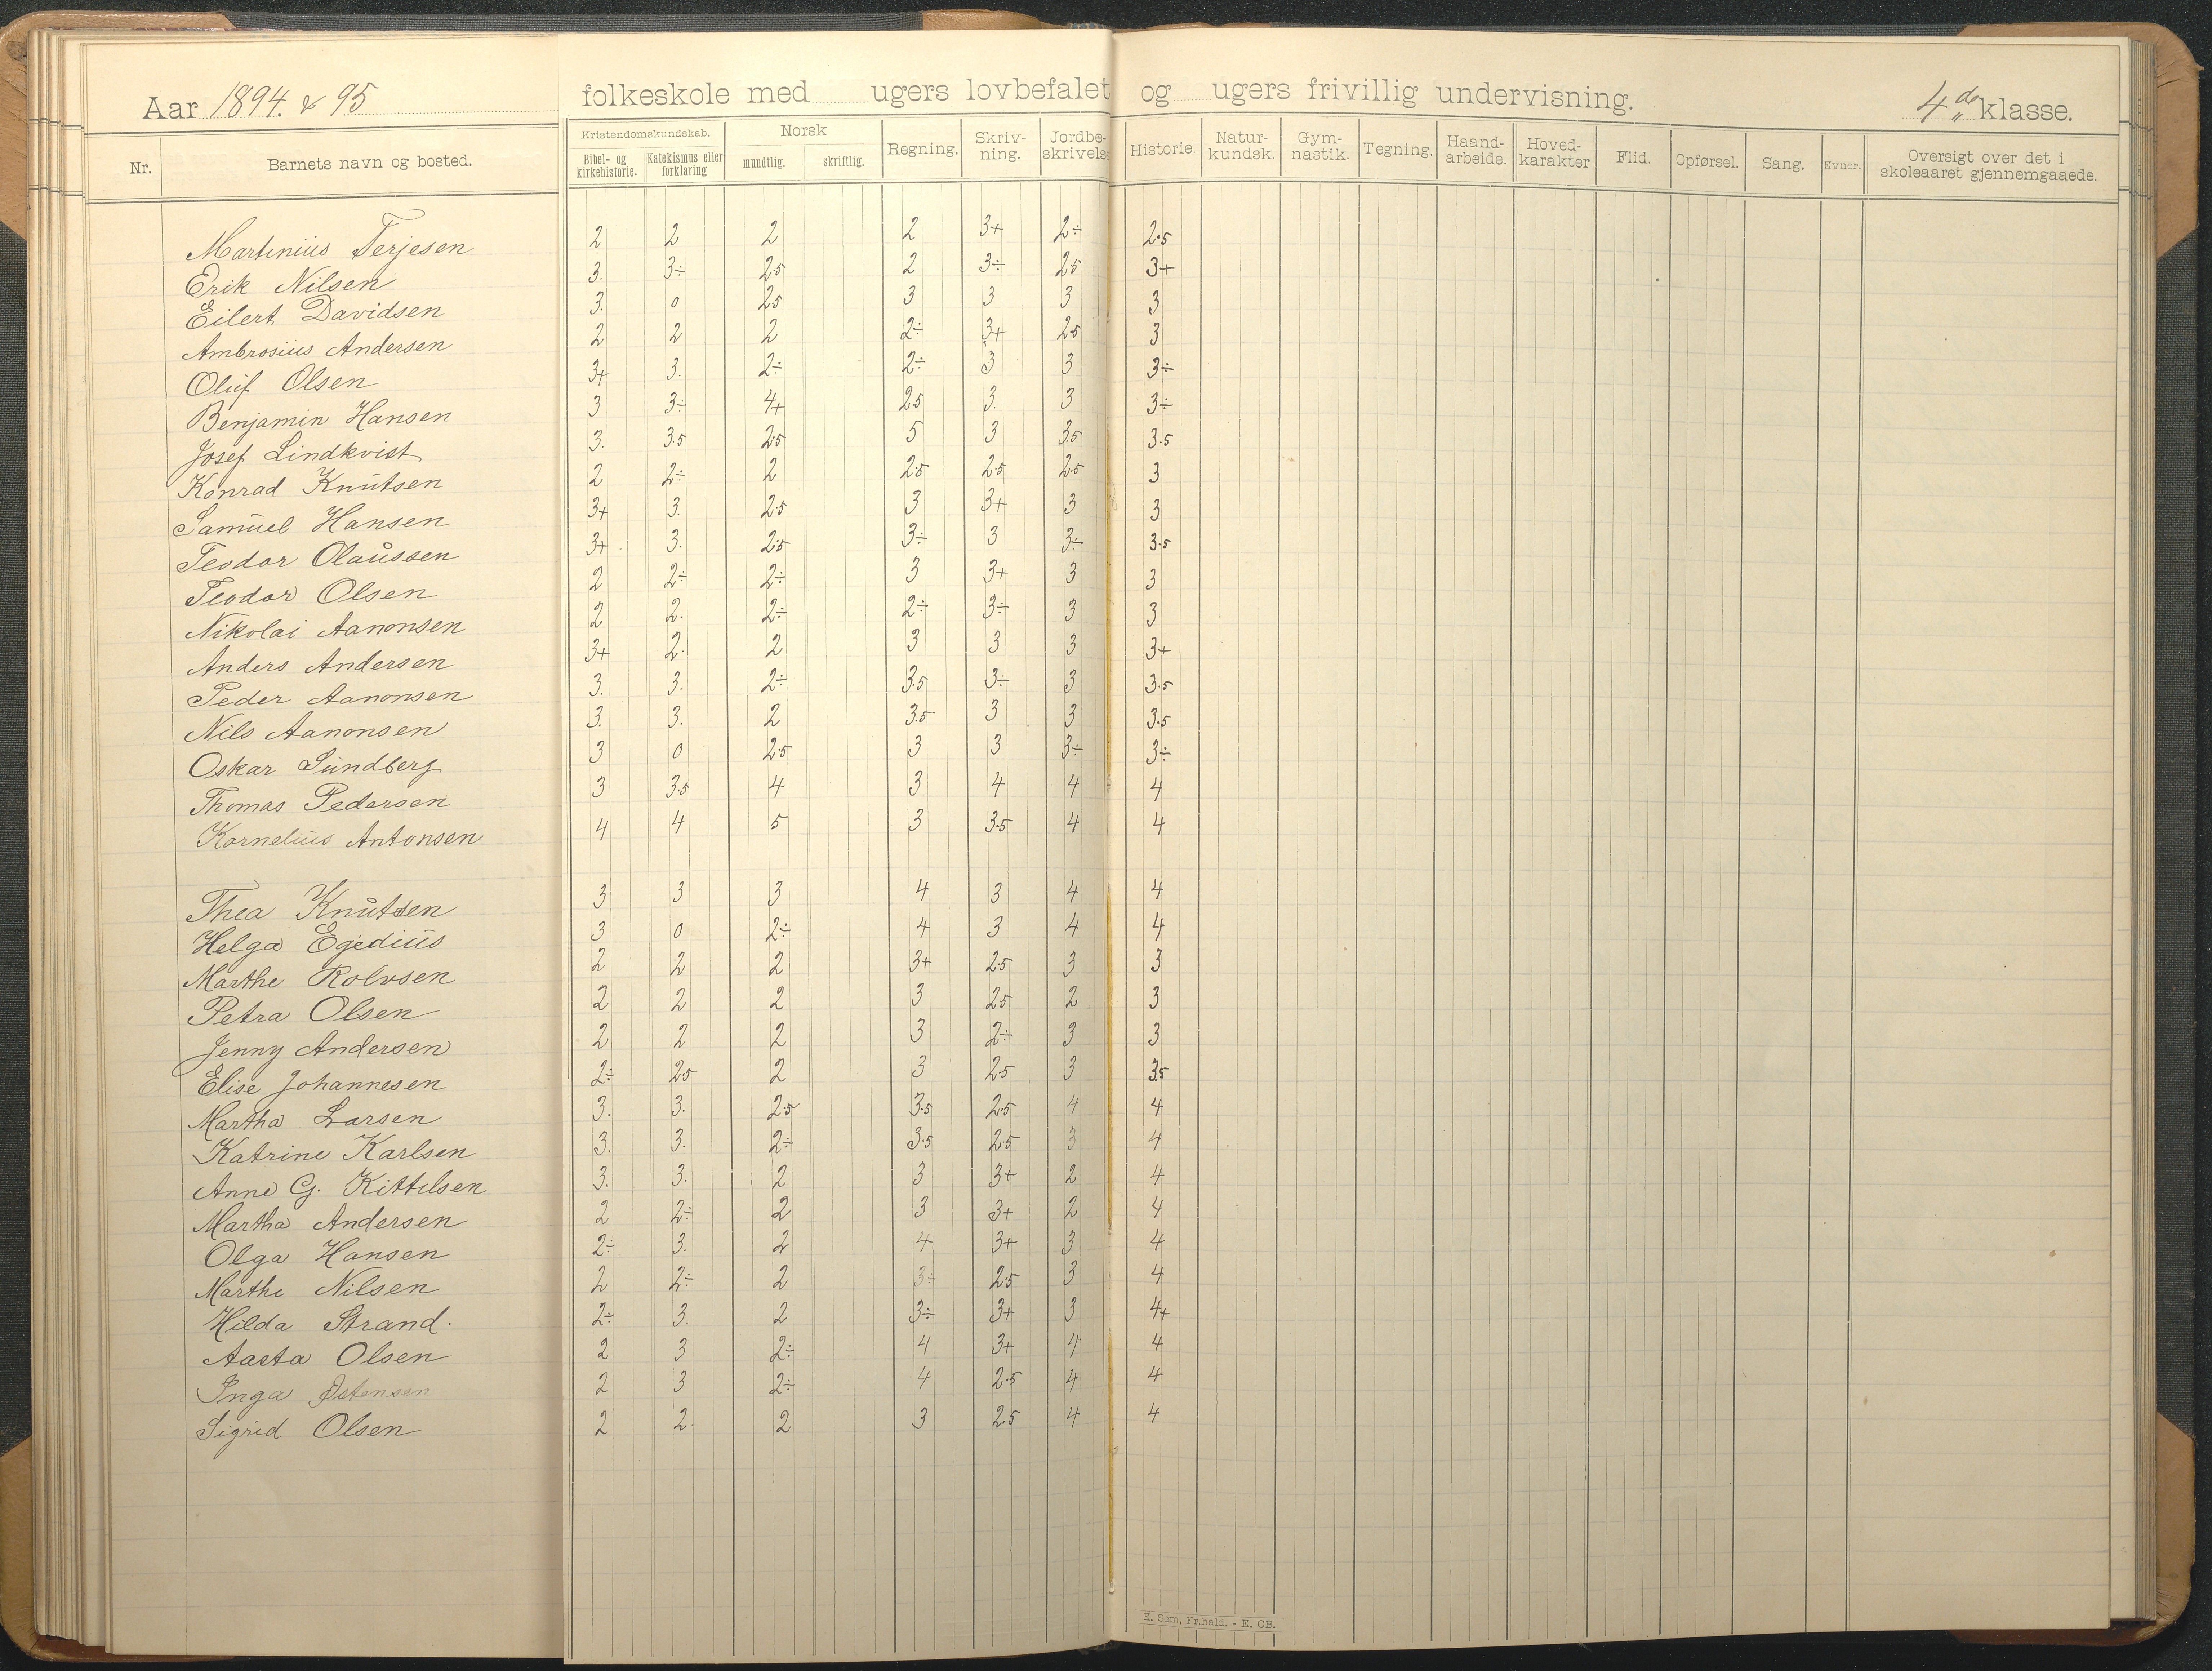 Aar 1894. & 95 folkeskole med ugers lovbefalet og ugers frivillig undervisning. 4de klasse.
Nr. Barnets navn og bosted. Kristendomskundskab. Bibel- og kirkehistorie. Katekismus eller forklaring Norsk mundtlig. skriftlig. Regning. Skriv-ning. Jordbe-skrivelse Historie. Natur-kundsk. Gym-nastik. Tegning. Haand-arbeide. Hoved-karakter Flid. Opførsel. Sang. Evner. Oversigt over det i skoleaaret gjennemgaaede.
Martinius Terjesen 2 2 2 2 3+ 2÷ 2.5
Erik Nilsen 3. 3÷ 2.5 2 3÷ 2.5 3+
Eilert Davidsen 3. 0 2.5 3 3 3 3
Ambrosius Andersen 2 2 2 2÷ 3+ 2.5 3
Oluf Olsen 3+ 3. 2÷ 2÷ 3 3 3÷
Benjamin Hansen 3 3÷ 4+ 2.5 3. 3 3÷
Josef Lindkvist 3. 3.5 2.5 5 3 3.5 3.5
Konrad Knutsen 2 2÷ 2 2.5 2.5 2.5 3
Samuel Hansen 3+ 3. 2.5 3 3+ 3 3
Teodor Olaussen 3+ 3. 2.5 3÷ 3 3÷ 3.5
Teodor Olsen 2 2÷ 2÷ 3 3+ 3 3
Nikolai Aanonsen 2 2. 2÷ 2÷ 3÷ 3 3
Anders Andersen 3+ 2. 2 3 3 3 3+
Peder Aanonsen 3. 3. 2÷ 3.5 3÷ 3 3.5
Nils Aanonsen 3. 3. 2 3.5 3 3 3.5
Oskar Sundberg 3 0 2.5 3 3 3÷ 3÷
Thomas Pedersen 3 3.5 4 3 4 4 4
Kornelius Antonsen 4 4 5 3 3.5 4 4
Thea Knutsen 3 3 3 4 3 4 4
Helga Egedius 3 0 2÷ 4 3 4 4
Marthe Rolvsen 2 2 2 3+ 2.5 3 3
Petra Olsen 2 2 2 3 2.5 2 3
Jenny Andersen 2 2 2 3 2÷ 3 3
Elise Johannesen 2÷ 2.5 2 3 2.5 3 3.5
Martha Larsen 3. 3. 2.5 3.5 2.5 4 4
Katrine Karlsen 3. 3. 2÷ 3.5 2.5 3 4
Anne G. Kittilsen 3. 3. 2 3 3+ 2 4
Martha Andersen 2 2÷ 2 3 3+ 2 4
Olga Hansen 2÷ 3. 2 4 3+ 3 4
Marthe Nilsen 2 2÷ 2 3÷ 2.5 3 4
Hilda Strand. 2÷ 3. 2 3÷ 3+ 3 4+
Aasta Olsen 2 3 2÷ 4 3+ 4 4
Inga Østensen 2 3 2÷ 4 2.5 4 4
Sigrid Olsen 2 2. 2 3 2.5 4 4
E. Sem, Fr.hald. - E. CB.